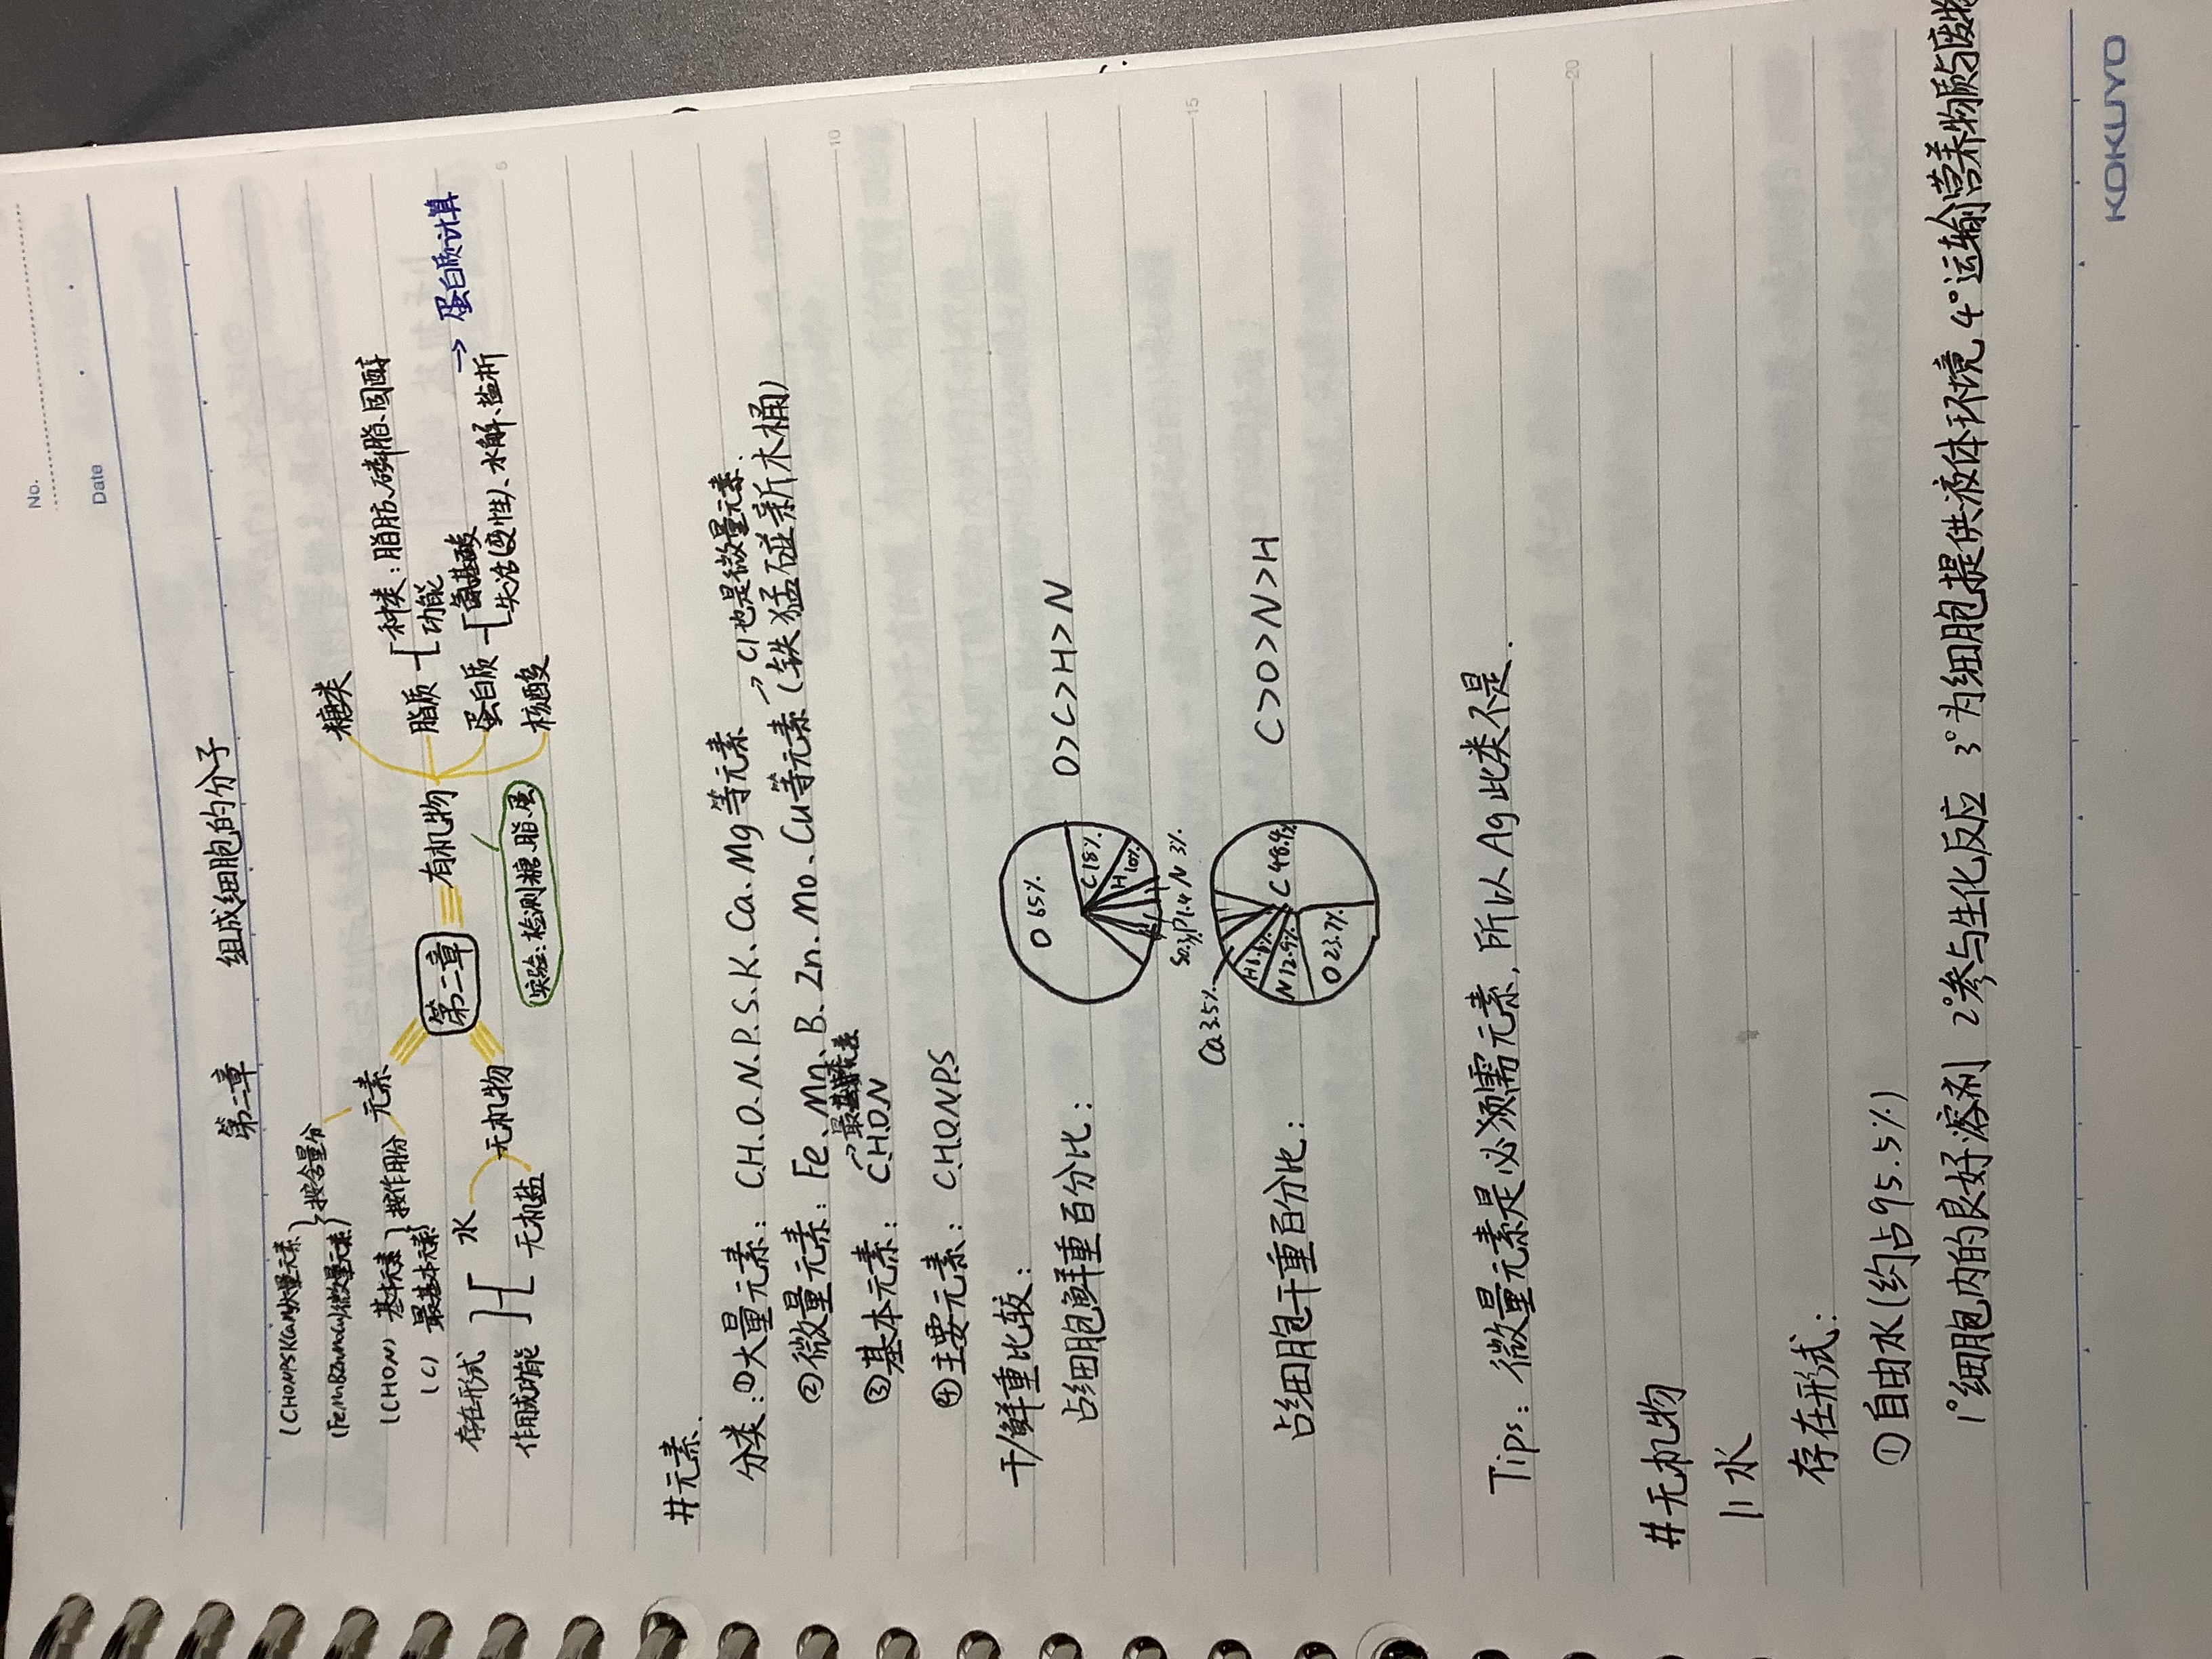 No.
Date
第二章 组成细胞的分子
(CHONPSKCaMg)大量元素
(FeMnBZnMoCu)微量元素
按含量分
(CHON) 基本元素
(C) 最基本元素
按作用分
元素
存在形式
作用或功能
水
无机盐
无机物
第二章
有机物
实验:检测糖、脂、蛋
糖类
脂质
种类:脂肪、磷脂、固醇
功能
蛋白质
氨基酸
失活(变性)、水解、盐析
→ 蛋白质计算
核酸
#元素.
分类:①大量元素: C.H.O.N.P.S.K.Ca.Mg等元素
→Cl也是微量元素.
②微量元素: Fe、Mn、B.Zn.Mo.Cu等元素(铁猛碰新木桶)
→最基本元素
③基本元素: C.H.O.N
④主要元素: C.H.O.N.P.S
干/鲜重比较:
占细胞鲜重百分比:
O 65%
C 18%
H 10%
N 3%
P1.4
S0.3
O>C>H>N
占细胞干重百分比:
Ca 3.5%
C 48.4%
O 23.7%
N 12.9%
C>O>N>H
Tips: 微量元素是必须需元素, 所以Ag此类不是.
#无机物
|| 水
存在形式:
①自由水(约占95.5%)
1°细胞内的良好溶剂 2°参与生化反应 3°为细胞提供液体环境, 4°运输营养物质与废物
5
10
15
20
KOKUYO